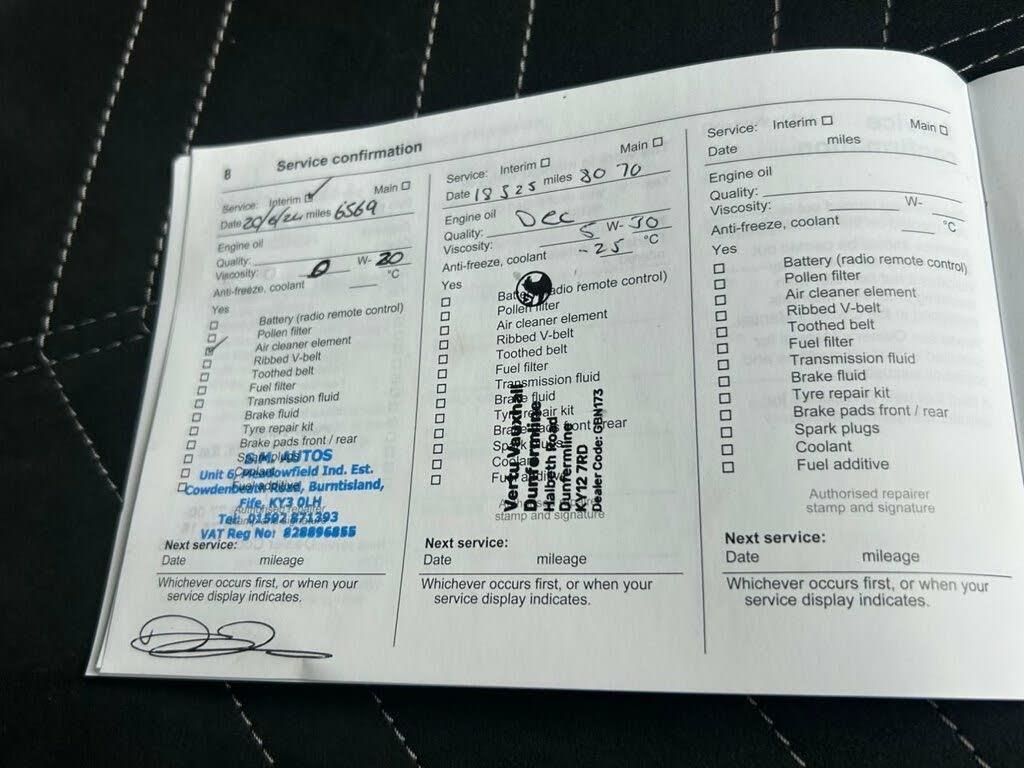 8 Service confirmation
Service: Interim ☑ Main ☐
Date 20/6/24 miles 6569
Engine oil
Quality:
Viscosity: 0 W- 20
Anti-freeze, coolant °C
Yes
☐ Battery (radio remote control)
☐ Pollen filter
☑ Air cleaner element
☐ Ribbed V-belt
☐ Toothed belt
☐ Fuel filter
☐ Transmission fluid
☐ Brake fluid
☐ Tyre repair kit
☐ Brake pads front / rear
☐ Spark plugs
☐ Coolant
☐ Fuel additive
AUTOS
Unit 6, Ind. Est.
Cowdenbeath Road, Burntisland,
Fife, KY3 0LH
Tel: 01592 871393
VAT Reg No: 828896855
Authorised repairer
stamp and signature
Next service:
Date mileage
Whichever occurs first, or when your
service display indicates.
Service: Interim ☐ Main ☐
Date 18 5 25 miles 80 70
Engine oil
Quality: Dec
Viscosity: 5 W- 30
Anti-freeze, coolant -25 °C
Yes
☐ Battery (radio remote control)
☐ Pollen filter
☐ Air cleaner element
☐ Ribbed V-belt
☐ Toothed belt
☐ Fuel filter
☐ Transmission fluid
☐ Brake fluid
☐ Tyre repair kit
☐ Brake pads front / rear
☐ Spark plugs
☐ Coolant
☐ Fuel additive
Vertu Vauxhall
Dunfermline
Halbeth Road
Dunfermline
KY12 7RD
Dealer Code: GBN173
Authorised repairer
stamp and signature
Next service:
Date mileage
Whichever occurs first, or when your
service display indicates.
Service: Interim ☐ Main ☐
Date miles
Engine oil
Quality:
Viscosity: W-
Anti-freeze, coolant °C
Yes
☐ Battery (radio remote control)
☐ Pollen filter
☐ Air cleaner element
☐ Ribbed V-belt
☐ Toothed belt
☐ Fuel filter
☐ Transmission fluid
☐ Brake fluid
☐ Tyre repair kit
☐ Brake pads front / rear
☐ Spark plugs
☐ Coolant
☐ Fuel additive
Authorised repairer
stamp and signature
Next service:
Date mileage
Whichever occurs first, or when your
service display indicates.